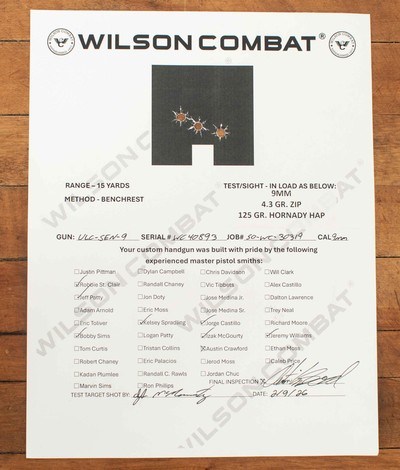 WILSON COMBAT®
RANGE – 15 YARDS
METHOD - BENCHREST
TEST/SIGHT - IN LOAD AS BELOW:
9MM
4.3 GR. ZIP
125 GR. HORNADY HAP
GUN: ULC-SEN-9 SERIAL# WC40893 JOB# 50-WC-30319 CAL 9mm
Your custom handgun was built with pride by the following
experienced master pistol smiths:
Justin Pittman Dylan Campbell Chris Davidson Will Clark
Robbie St. Clair Randall Chaney Vic Tibbets Alex Castillo
Jeff Patty Jon Doty Jose Medina Jr. Dalton Lawrence
Adam Arnold Eric Moss Jose Medina Sr. Trey Neal
Eric Toliver Kelsey Spradling Jorge Castillo Richard Moore
Bobby Sims Logan Patty Zak McGourty Jeremy Williams
Tom Curtis Tristan Collins Austin Crawford Ethan Moss
Robert Chaney Eric Palacios Jerod Moss Caleb Price
Kadan Plumlee Randall C. Rawls Jordan Chuc
Marvin Sims Ron Phillips
FINAL INSPECTION
TEST TARGET SHOT BY: DATE: 2/9/26
WILSON COMBAT